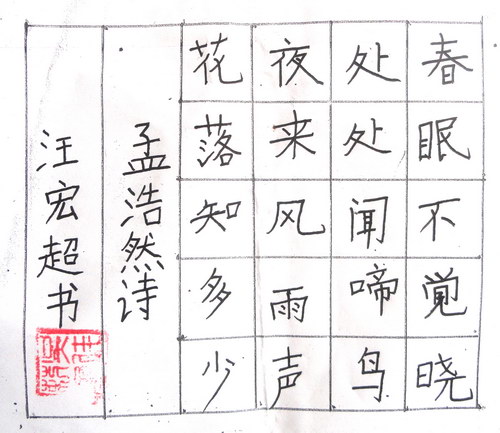 春眠不觉晓
处处闻啼鸟
夜来风雨声
花落知多少
孟浩然诗
汪宏超书